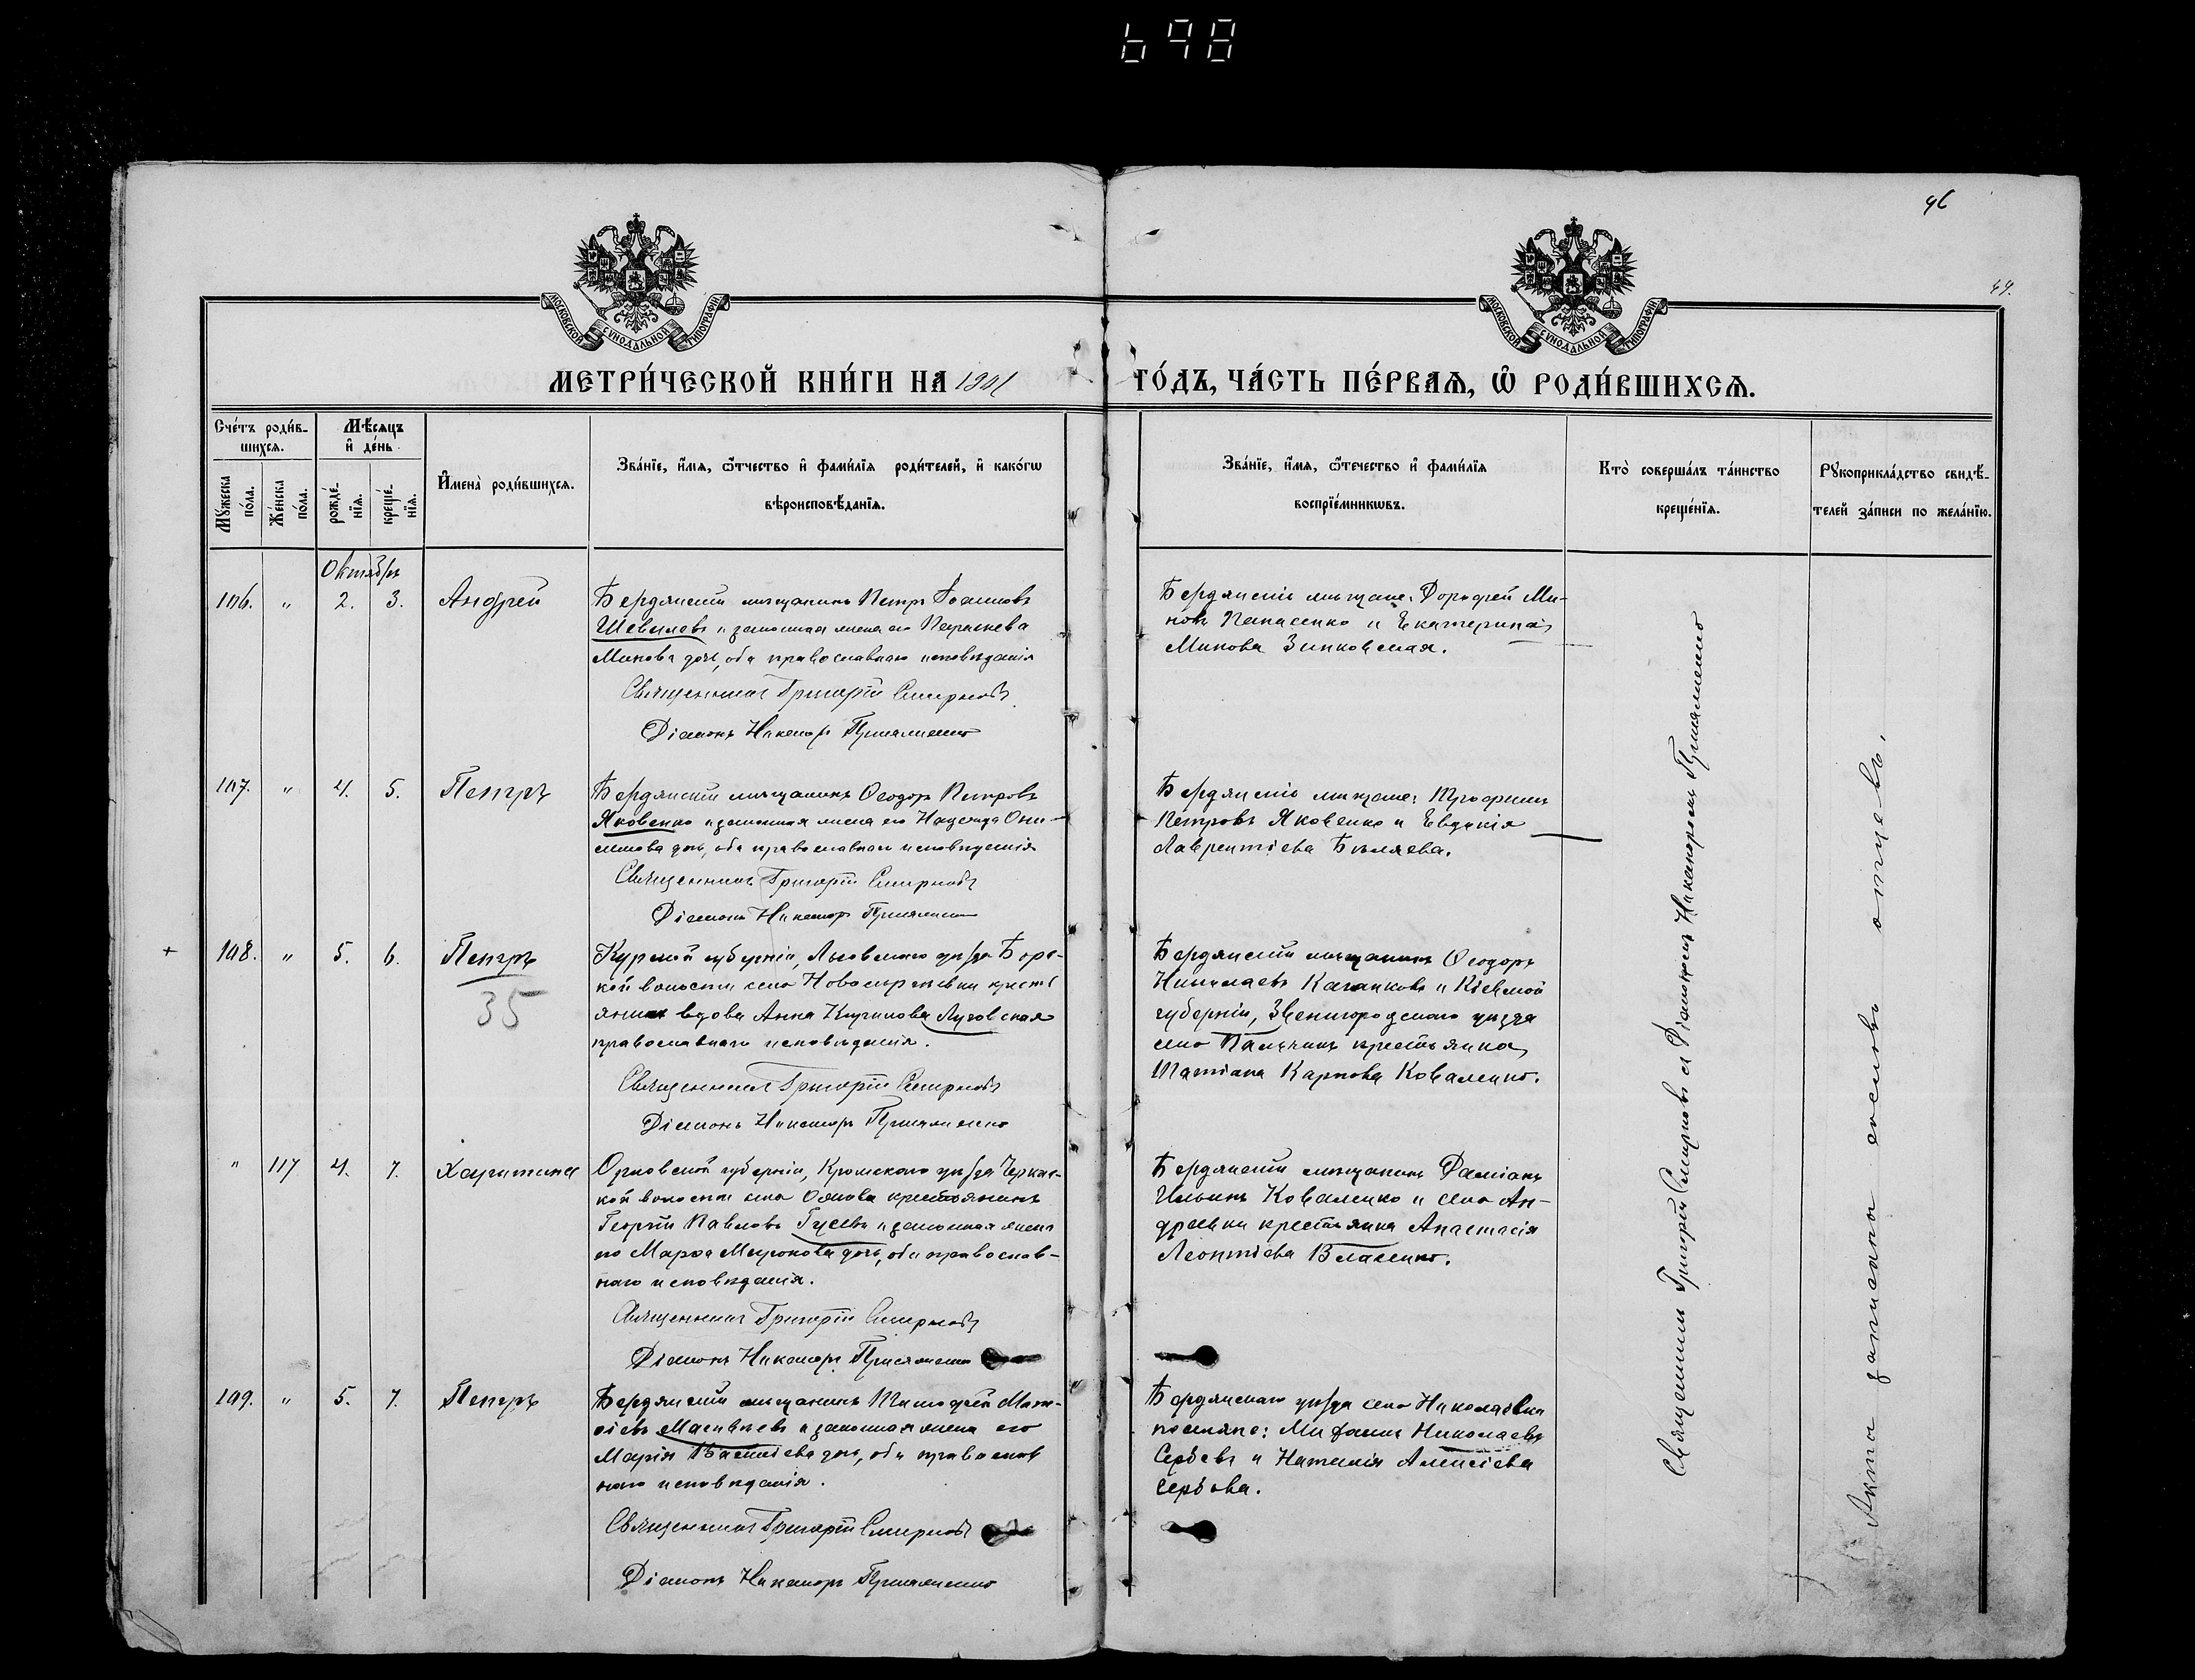 698
46
49.
МОСКОВСКОЙ СѴНОДАЛЬНОЙ ТИПОГРАФІИ
МОСКОВСКОЙ СѴНОДАЛЬНОЙ ТИПОГРАФІИ
МЕТРИ́ЧЕСКОЙ КНИ́ГИ НА 1901 ГО́ДЪ, ЧА́СТЬ ПЕ́РВАѦ, Ѽ РОДИ́ВШИХСѦ.
Сче́тъ роди́в-
шихсѧ.
Мꙋ́жеска по́ла.
Же́нска по́ла.
Мѣ́сѧцъ
и҆ де́нь
рожде́-
нїѧ.
креще́-
нїѧ.
И҆мена̀ роди́вшихсѧ.
Зва́нїе, и҆́мѧ, ѻ҆́тчество и҆ фами́лїѧ роди́телей, и҆ како́гѡ
вѣроисповѣ́данїѧ.
Зва́нїе, и҆́мѧ, ѻ҆́течество и҆ фами́лїѧ
воспрїе́мникѡвъ.
Кто̀ соверша́лъ та́инство
креще́нїѧ.
Рꙋкоприкла́дство свидѣ́-
телей за́писи по жела́нїю.
Октябрь
106. " 2. 3. Андрей
Бердянскій мѣщанинъ Петръ Іоанновъ
Шевелевъ и законная жена его Параскева
Минова дочь, оба православнаго исповѣданія
Священникъ Григорій Смирновъ
Діаконъ Никаноръ Присяженко
Бердянскіе мѣщане: Дорофей Ми-
новъ Панасенко и Екатерина
Минова Зинковская.
107. " 4. 5. Петръ
Бердянскій мѣщанинъ Ѳеодоръ Петровъ
Яковенко и законная жена его Надежда Они-
симова дочь, оба православнаго исповѣданія
Священникъ Григорій Смирновъ
Діаконъ Никаноръ Присяженко
Бердянскіе мѣщане:
Петровъ Яковенко и Евдокія
Лаврентіева Бѣляева.
+ 108. " 5. 6. Петръ
35
Курской губерніи, Льговскаго уѣзда Борс-
кой волости села крестъ
янка вдова Анна Кирилова Луговская
православнаго исповѣданія.
Священникъ Григорій Смирновъ
Діаконъ Никаноръ Присяженко
Бердянскій мѣщанинъ Ѳеодоръ
Николаевъ и Кіевской
губерніи, Звенигородскаго уѣзда
села крестьянка
Татіана Карпова Коваленко.
" 117 4. 7. Харитина
Орловской губерніи, Кромскаго уѣзда Черкас-
кой волости села крестьянинъ
Георгій Павловъ Гусевъ и законная жена
его Марѳа Миронова дочь, оба православ-
наго исповѣданія.
Священникъ Григорій Смирновъ
Діаконъ Никаноръ Присяженко
Бердянскій мѣщанинъ Даміанъ
Ильинъ Коваленко и села Ан-
дреевки крестьянка Анастасія
Леонтіева Власенко.
109. " 5. 7. Петръ
Бердянскій мѣщанинъ Тимоѳей Мат-
ѳіевъ и законная жена его
Марія Василіева дочь, оба православ
наго исповѣданія.
Священникъ Григорій Смирновъ
Діаконъ Никаноръ Присяженко
Бердянскаго уѣзда села Николаевки
поселяне: Николаевъ
Сербовъ и Наталія Алексіева
Сербова.
Священникъ Григорій Смирновъ съ Діакономъ Никаноромъ Присяженко
Акта записаны